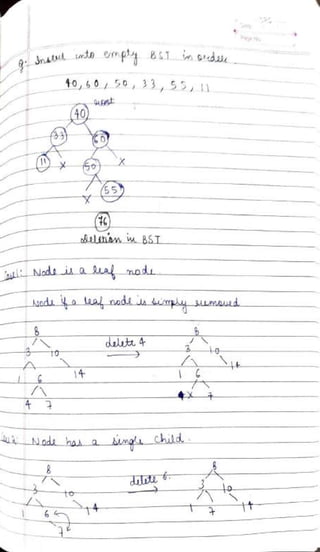 Q. Insert into empty BST in order
40, 60, 50, 33, 55, 11
root
40
33 60
11 X 50 X
X 55
76
Deletion in BST
Case 1: Node is a leaf node.
Node if a leaf node is simply removed
8 delete 4 8
3 10 3 10
1 6 14 1 6 14
4 7 X 7
Node has a single child.
8 delete 6. 8
3 10 3 10
1 6 14 1 7 14
7